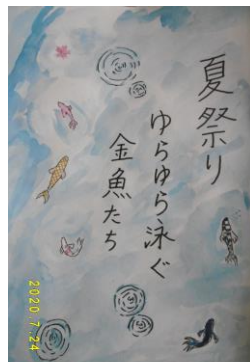 夏祭り
ゆらゆら泳ぐ
金魚たち
2020 7.24